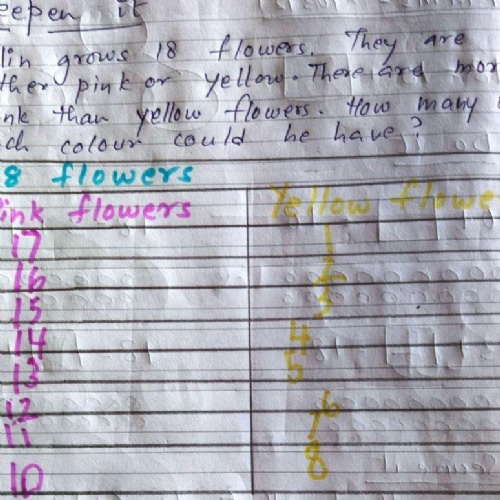 eepen it
lin grows 18 flowers. They are
ther pink or yellow. There are mor
nk than yellow flowers. How many
ch colour could he have?
8 flowers
ink flowers Yellow flowe
17 1
16 2
15 3
14 4
13 5
12 6
11 7
10 8